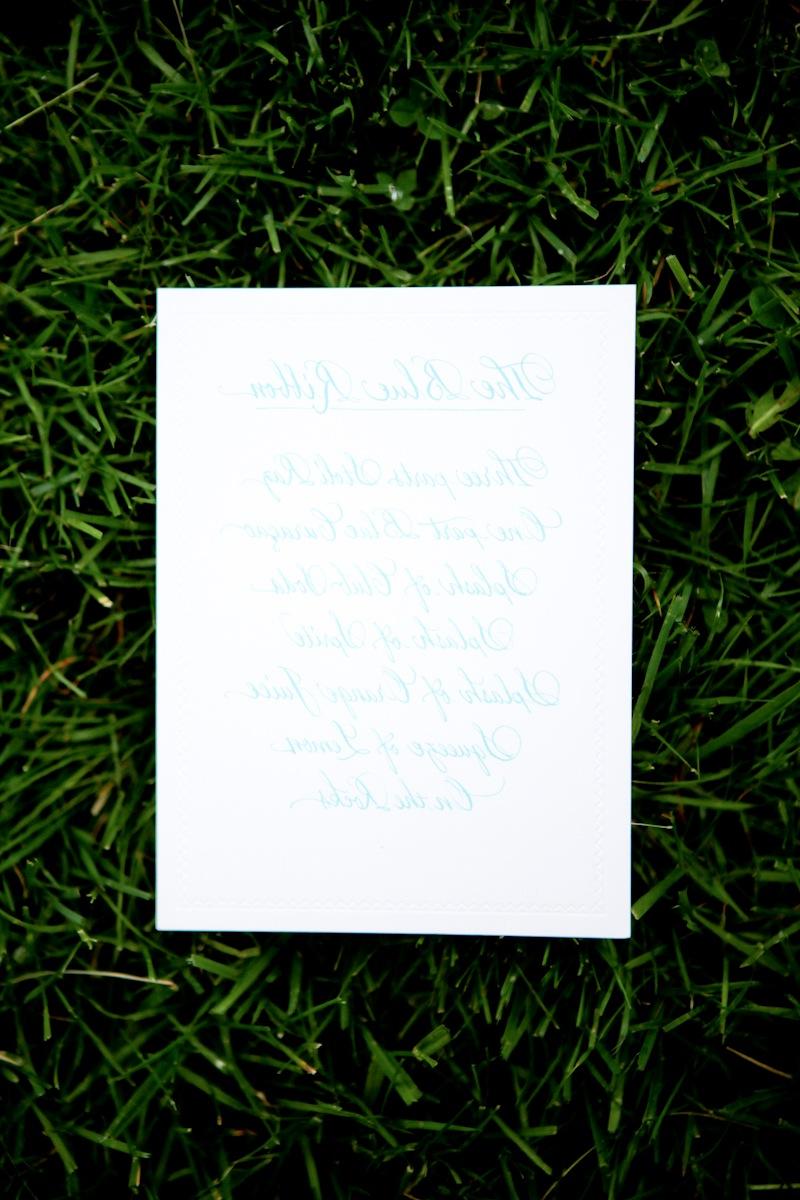 The Blue Ribbon
Three parts Stoli Raz
One part Blue Curaçao
Splash of Club Soda
Splash of Sprite
Splash of Orange Juice
Squeeze of Lemon
On the Rocks